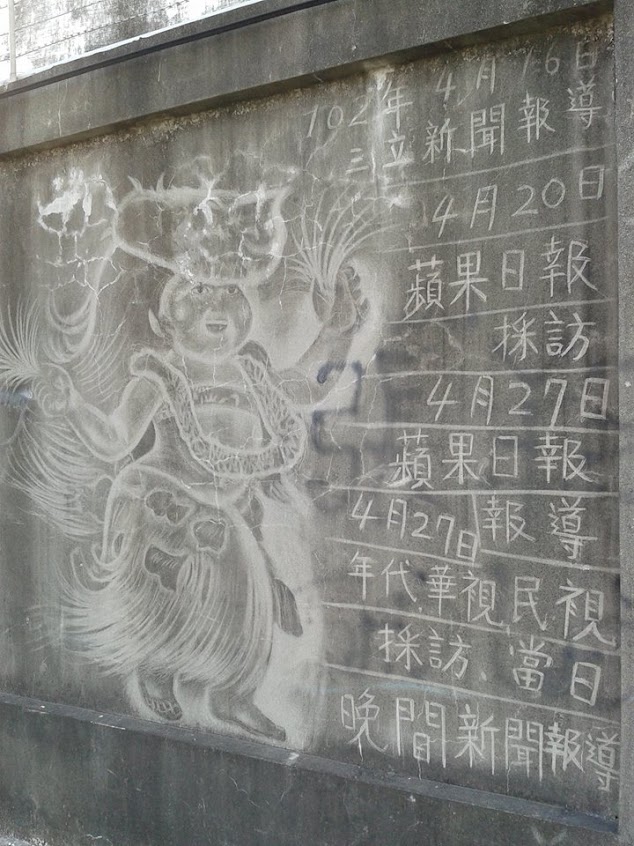 102年4月16日
三立新聞報導
4月20日
蘋果日報
採訪
4月27日
蘋果日報
4月27日報導
年代、華視、民視
採訪、當日
晚間新聞報導